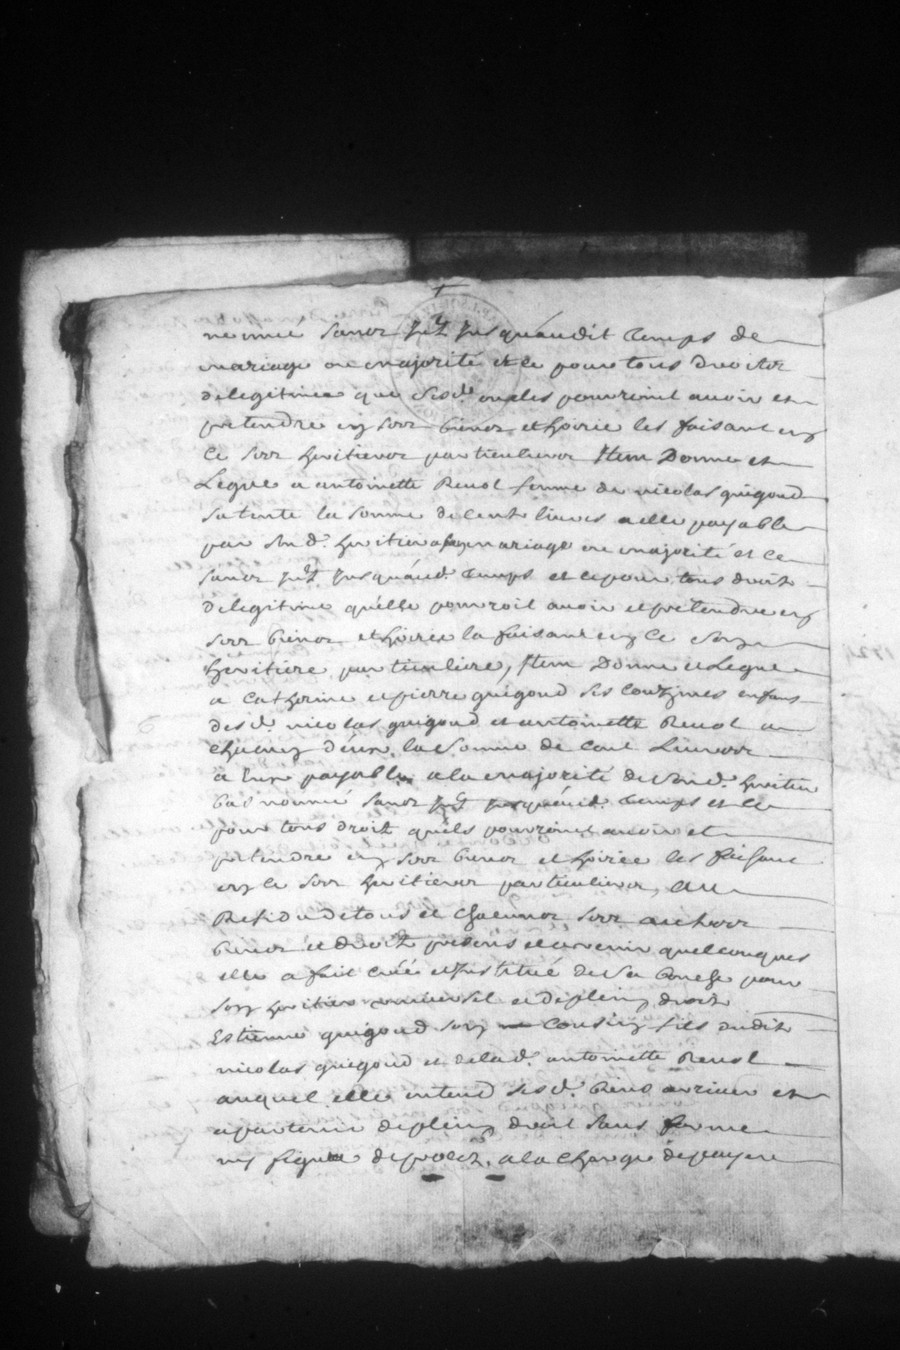 nommé sans jnt jusquaudit temps de
mariage ou majorité et ce pour tous droitz
delegitime que sesd. oncles pourroint avoir et
pretendre en sous biens et hoirie les faisant en
ce sous heritiers particuliers Item Donne et
Legue a antoinette Revol femme de nicolas quigoud
sa tente la somme de cent livres a elle payable
par sond. heritier mariage ou majorité et ce
sans jnt jusquaud. temps et ce pour tous droits
delegitime quelle pourroit avoir et pretendre en
sous biens et hoirie la faisant en ce son
heritiere particuliere, Item Donne et Legue
a catherine et pierre quigoud ses cousines enfans
desd. nicolas quigoud et antoinette Revol a
chacun deux la somme de cent Livres
a Eux payable a la majorité de sond. heritier
bas nommé sans jnt jusquaud. temps et ce
pour tous droit quils pourroint avoir et
pretendre en sous biens et hoirie les faisant
en ce sous heritiers particuliers, Au
Residu de tous et chacuns sous autres
biens et droitz presens et avenir quelconques
elle a fait créé et Institué de sa bouche pour
son heritier universel et de plein droit
Estienne quigoud son cousin fils dudit
nicolas quigoud et delad. antoinette Revol
auquel elle entend sesd. biens arriver et
apartenir de plein droit sans forme
ny figure de procez, a la charge de payer